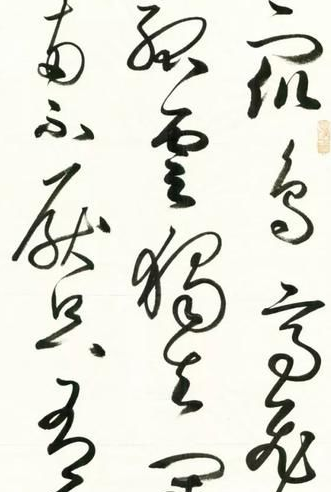 眾鳥高飛
孤雲獨去
兩不厭只有